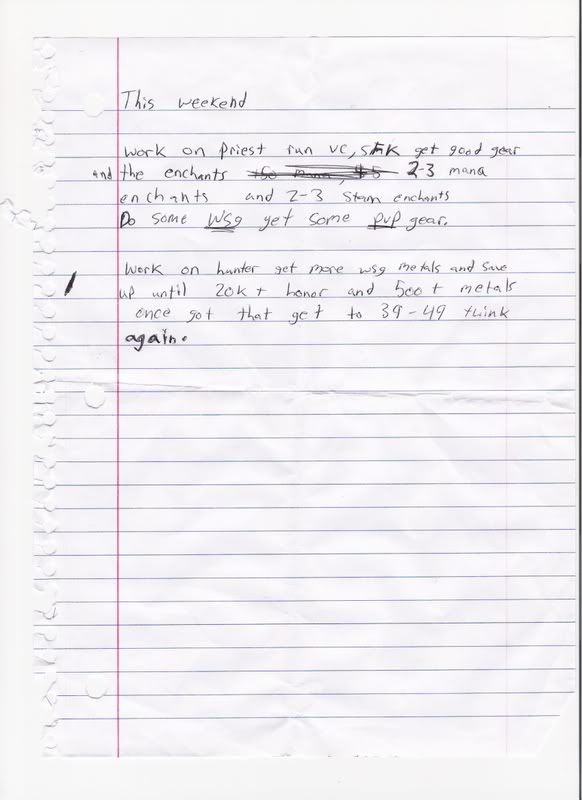 This weekend
Work on Priest run VC, SFK get good gear
and the enchants +50 mana, 2-3 mana
enchants and 2-3 stam enchants
Do some WSg get some PvP gear.
Work on hunter get more wsg metals and save
up until 20k+ honor and 500+ metals
once got that get to 39-49 think
again.